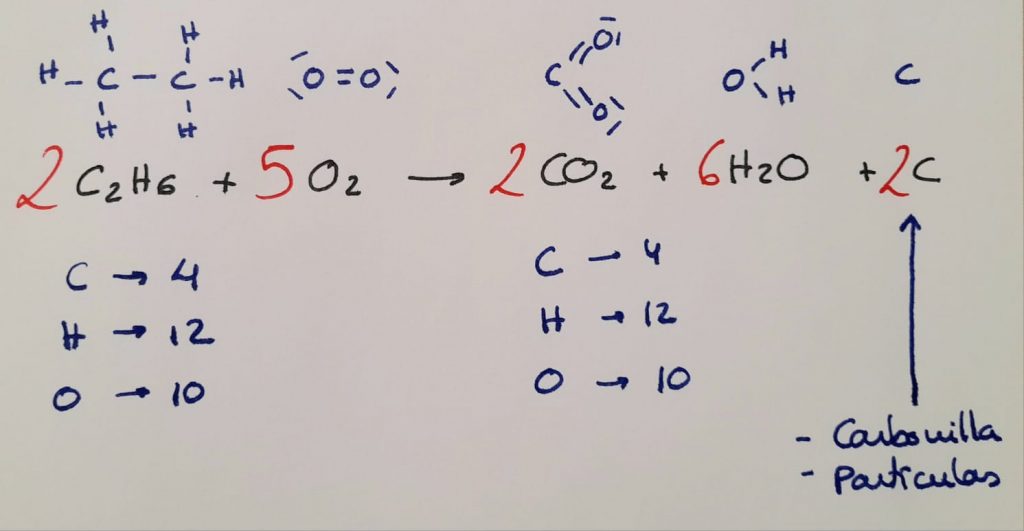 H H
H - C - C - H O = O C O O O H H C
H H
2 C₂H₆ + 5 O₂ → 2 CO₂ + 6 H₂O + 2 C
C → 4 C → 4
H → 12 H → 12
O → 10 O → 10
- Carbonilla
- Partículas